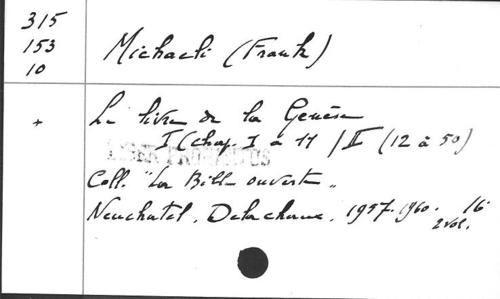 315
153
10
Michaeli (Frank)
* Le livre de la Genèse
I (chap. I à 11 / II (12 à 50)
Coll. "La Bible ouverte"
Neuchatel, Delachaux, 1957-1960. 16°
2 vol.